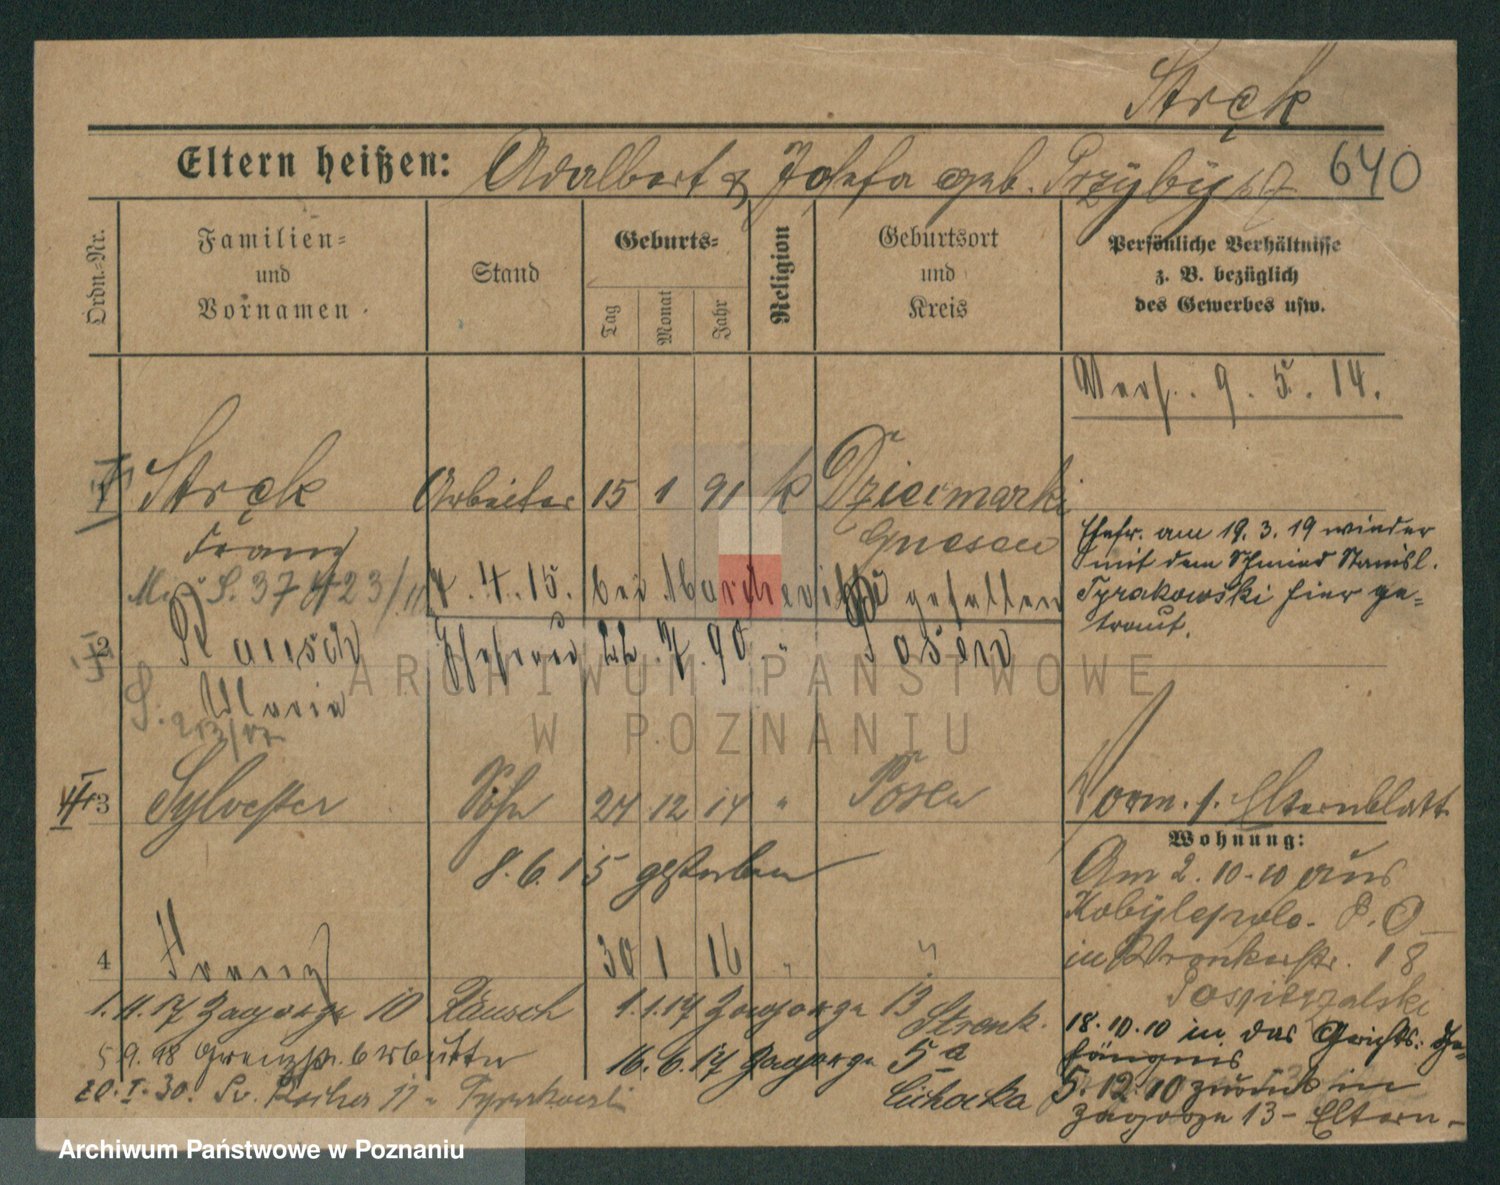 Stręk
Eltern heißen: Adalbert & Josefa geb. Przybył
640
Ordn.-Nr.
Familien-
und
Vornamen.
Stand
Geburts-
Tag
Monat
Jahr
Religion
Geburtsort
und
Kreis
Persönliche Verhältnisse
z. B. bezüglich
des Gewerbes usw.
9. 5. 14.
1 Stręk Arbeiter 15 1 91 k Dziecmarki
Franz Gnesen
S. 37 423/11
4. 15. bei gefallen
Ehefr. am 19. 3. 19 wieder
mit dem Schmied Stanisl.
Tyrakowski hier ge-
traut.
2 Rausch Ehefrau 22. 7. 90 " Posen
Maria
3 Sylvester Sohn 24 12 14 " Posen
8. 6. 15 gestorben
Vorm. s. Elternblatt
Wohnung:
Am 2. 10. 10 aus
Kobylepole. P. O
in Wronkerstr. 18
Pospieszalski
18. 10. 10 in das Gerichts. Ge-
fängnis
5. 12. 10 zurück in
Zagorze 13 – Eltern-
4 Franz 30 1 16 " "
1. 4. 17 Zagorze 10 Rausch
1. 1. 17 Zagorze 13
5 9. 18 Grenzstr. 6
16. 6. 17 Zagorze 5a
Cichocka
20. I. 30. Sw. 11 - Tyrakowski
ARCHIWUM PAŃSTWOWE
W POZNANIU
Archiwum Państwowe w Poznaniu